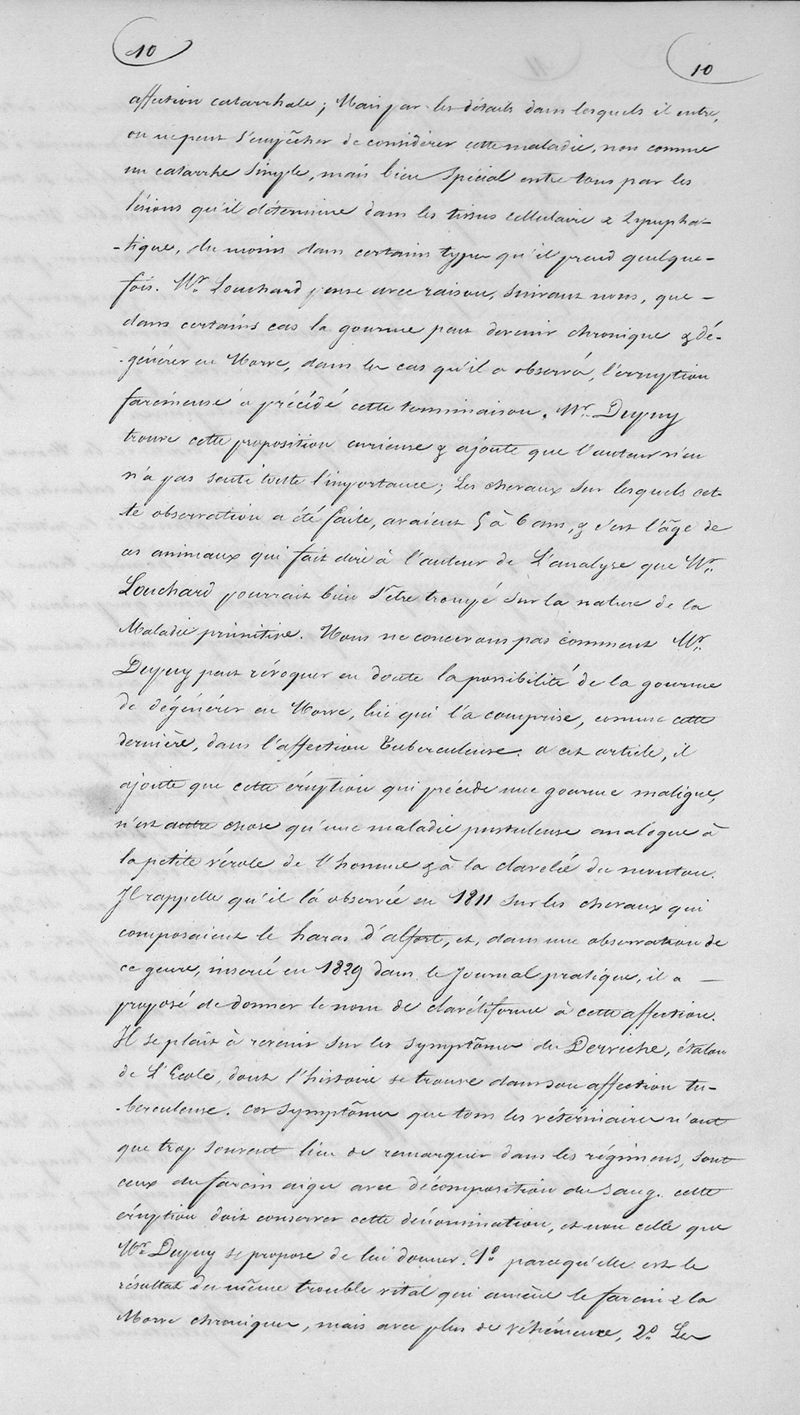 10
10
affection catarrhale; Mais par les détails dans lesquels il entre,
on ne peut s'empêcher de considérer cette maladie, non comme
un catarrhe simple, mais bien spécial entre tous par les
lésions qu'il détermine dans les tissus cellulaire & lympha-
-tique, du moins dans certains types qu'il prend quelque-
fois. Mr. Louchard pense avec raison, suivant nous, que -
dans certains cas la gourme peut devenir chronique & dé-
-générer en Morve, dans les cas qu'il a observé, l'érruption
farcineuse a précédé cette terminaison. Mr. Dupuy
trouve cette proposition curieuse & ajoute que l'auteur n'en
n'a pas senti toute l'importance; Les chevaux sur lesquels cet-
te observation a été faite, avaient 5 à 6 ans, & c'est l'âge de
ces animaux qui fait dire à l'auteur de L'analyse que Mr.
Louchard pourrait bien s'être trompé sur la nature de la
Maladie primitive. Nous ne concevons pas comment Mr.
Dupuy peut révoquer en doute la possibilité de la gourme
de dégénérer en Morve, lui qui l'a comprise, comme cette
dernière, dans l'affection Tuberculeuse. a cet article, il
ajoute que cette éruption qui précède une gourme maligne,
n'est autre chose qu'une maladie pustuleuse analogue à
la petite vérole de l'homme & à la clavelée du mouton.
Il rappelle qu'il l'a observée en 1811 sur les chevaux qui
composaient le haras d'alfort, et, dans une observation de
ce genre, inserée en 1829 dans le Journal pratique, il a -
proposé de donner le nom de claveliforme à cette affection.
Il se plaît à revenir sur les symptômes du Derviche, étalon
de L'Ecole, dont l'histoire se trouve dans son affection tu-
-berculeuse. ces symptômes que tous les vétérinaires n'ont
que trop souvent lieu de remarquer dans les régimens, sont
ceux du farcin aigu avec décomposition du sang. cette
éruption doit conserver cette dénomination, et non celle que
Mr. Dupuy se propose de lui donner. 1º parcequ'elle est le
résultat du même trouble vital qui amène le farcin & la
Morve chroniques, mais avec plus de véhémence, 2º Les